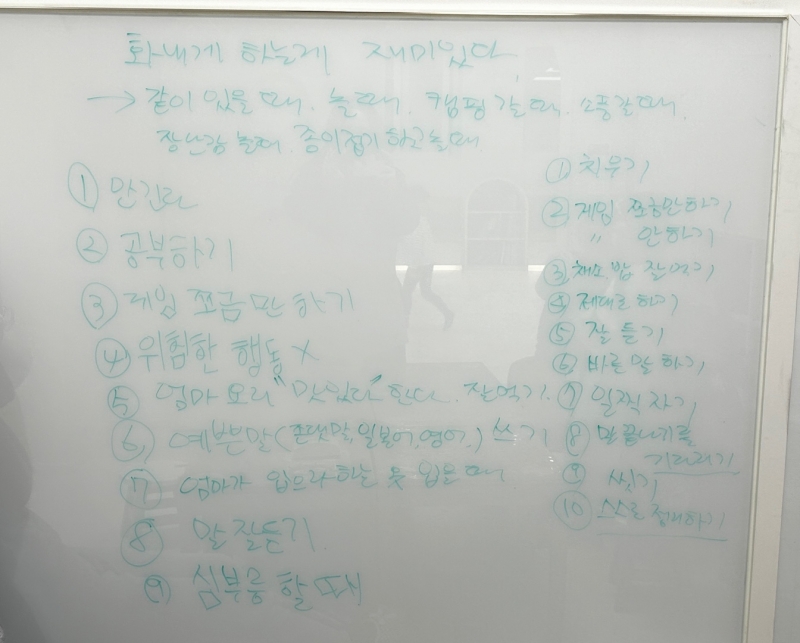 화내게 하는게 재미있다
→ 같이 있을 때. 놀 때. 캠핑 갈 때. 소풍 갈 때.
장난감 놀 때. 종이접기 하고 놀 때
① 안긴다
② 공부하기
③ 게임 쪼금만 하기
④ 위험한 행동 X
⑤ 엄마 요리 "맛있다" 한다. 잘 먹기.
⑥ 예쁜말(존댓말, 일본어, 영어.) 쓰기
⑦ 엄마가 입으라 하는 옷 입을 때
⑧ 말 잘듣기
⑨ 심부름 할 때
① 치우기
② 게임 쪼금만하기
〃 안하기
③ 채소 밥 잘 먹기
④ 제대로 하기
⑤ 잘 듣기
⑥ 바른말 하기
⑦ 일찍 자기
⑧ 말끝나기를
기다리기
⑨ 씻기
⑩ 스스로 정리하기